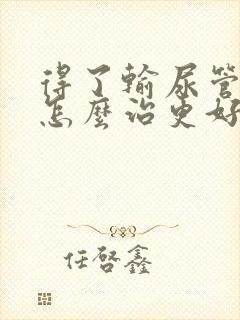 得了輸尿管
怎麼治更好
任啓鑫